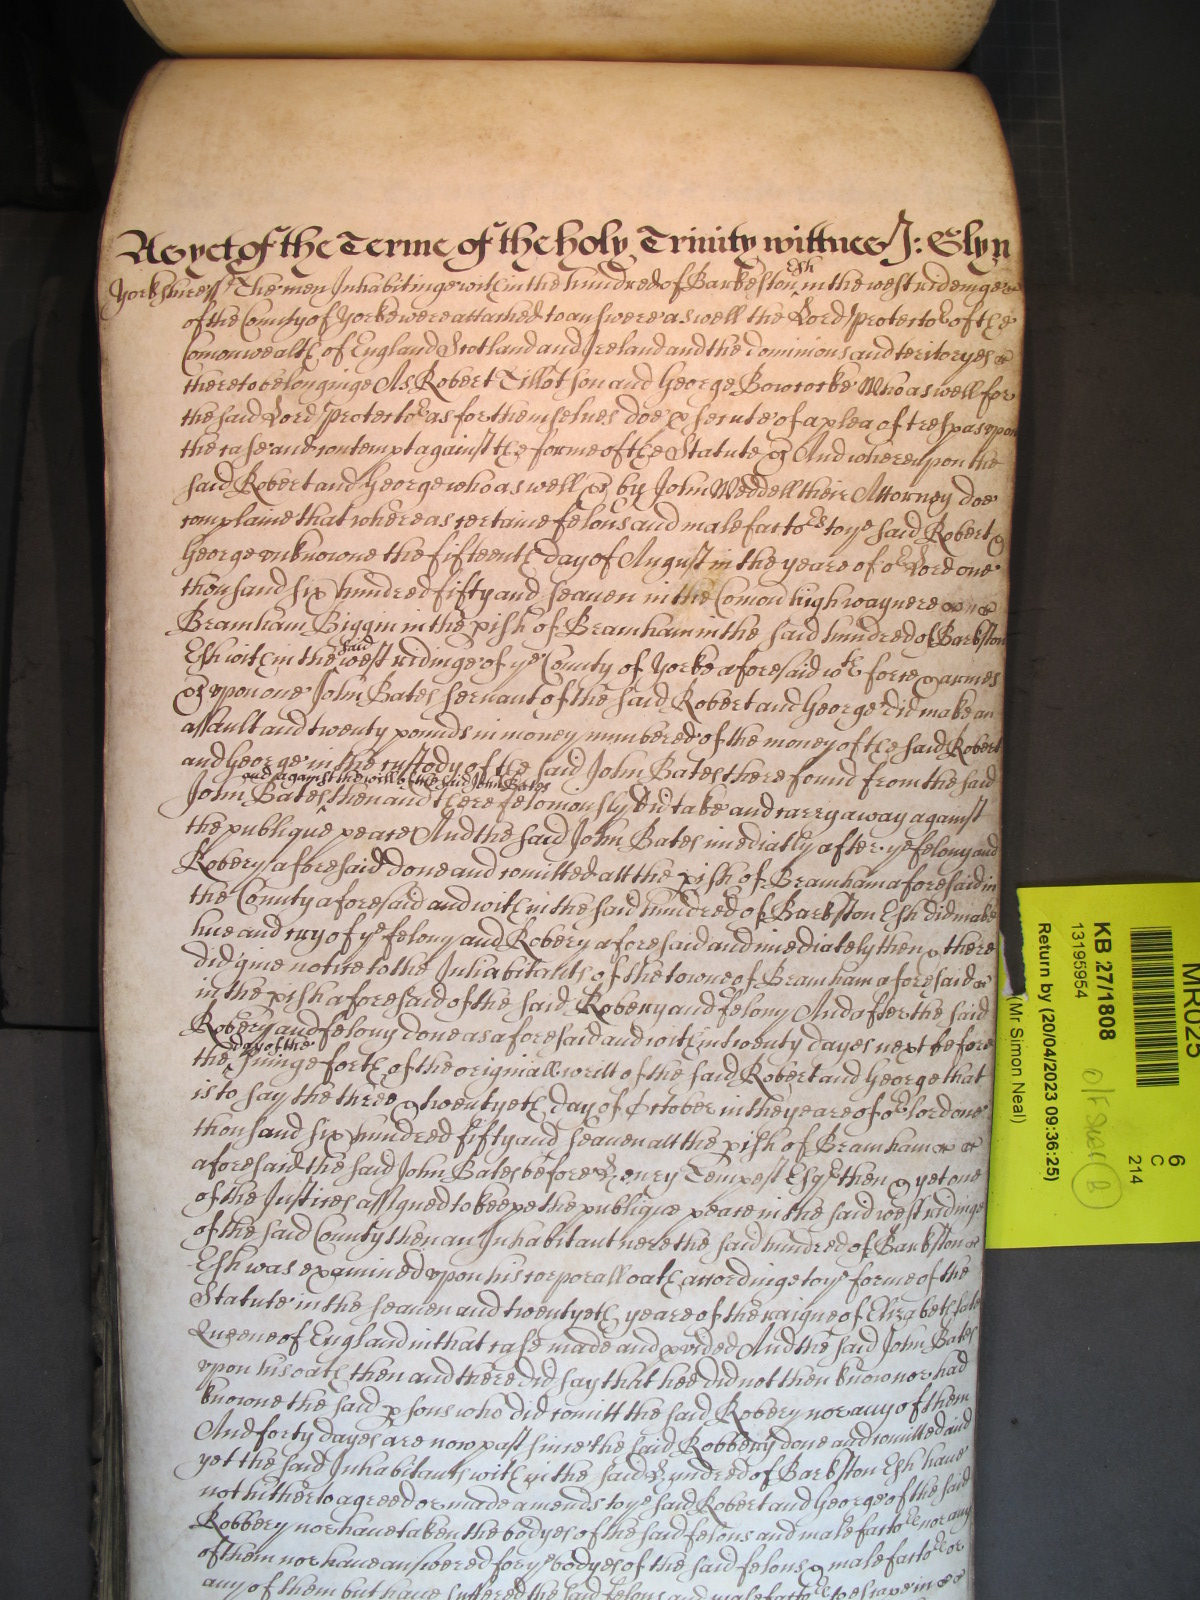 As yet of the Terme of the holy Trinity wittnes J: Glyn
Yorkshire ss The men Inhabitinge within the hundred of Barkeston Esh in the west rideinge
of the County of Yorke were attached to answere as well the Lord Protector of the
Comonwealth of England Scotland and Ireland and the dominions and teritoryes
thereto belonginge As Robert Tillotson and George Bowcocke Who as well for
the said Lord Protector as for themselves doe psecute of a plea of trespas upon
the case and contempt against the forme of the Statute &c And whereupon the
said Robert and George who as well &c by John Weddell their Attorney doe
complaine that whereas certaine felons and malefactors to ye said Robert &
George unknowne the fifteenth day of August in the yeare of or Lord one
thousand six hundred fifty and seaven in the Comon high way nere
Bramham Biggin in the pish of Bramham in the said hundred of Barkston
Esh within the said west ridinge of ye County of Yorke aforesaid wth force & armes
&c upon one John Bates servant of the said Robert and George did make an
assault and twenty pounds in money numbered of the money of the said Robert
and George in the custody of the said John Bates there found from the said
John Bates and against the will of the said John Bates then and there feloniously did take and carry away against
the publique peace And the said John Bates imediatly after ye felony and
Robery aforesaid done and comitted att the pish of Bramham aforesaid in
the County aforesaid and within the said hundred of Barkston Esh did make
hue and cry of ye felony and Robery aforesaid and imediately then & there
did give notice to the Inhabitants of the towne of Bramham aforesaid
in the pish aforesaid of the said Robery and felony And after the said
Robery and felony done as aforesaid and within twenty dayes next before
the day of the suinge forth of the originall writt of the said Robert and George that
is to say the three & twentyeth day of October in the yeare of or lord one
thousand six hundred fifty and seaven att the pish of Bramham
aforesaid the said John Bates before Henry Tempest Esqr then & yet one
of the Justices assigned to keepe the publique peace in the said west ridinge
of the said County then an Inhabitant nere the said hundred of Barkston
Esh was examined upon his corporall oath accordinge to ye forme of the
Statute in the seaven and twentyeth yeare of the raigne of Elizabeth late
Queene of England in that case made and pvided And the said John Bates
upon his oath then and there did say that hee did not then know nor had
knowne the said psons who did comitt the said Robery nor any of them
And forty dayes are now past since the said Robbery done and comitted and
yet the said Inhabitants within the said hundred of Barkston Esh have
not hitherto agreed or made amends to ye said Robert and George of the said
Robbery nor have taken the bodyes of the said felons and malefactors nor any
of them nor have answered for ye bodyes of the said felons & malefactors or
any of them but have suffered the said felons and malefactors to escape in
MR025
6
C
214
KB 27/1808
13195954
Return by (20/04/2023 09:36:25)
(Mr Simon Neal)